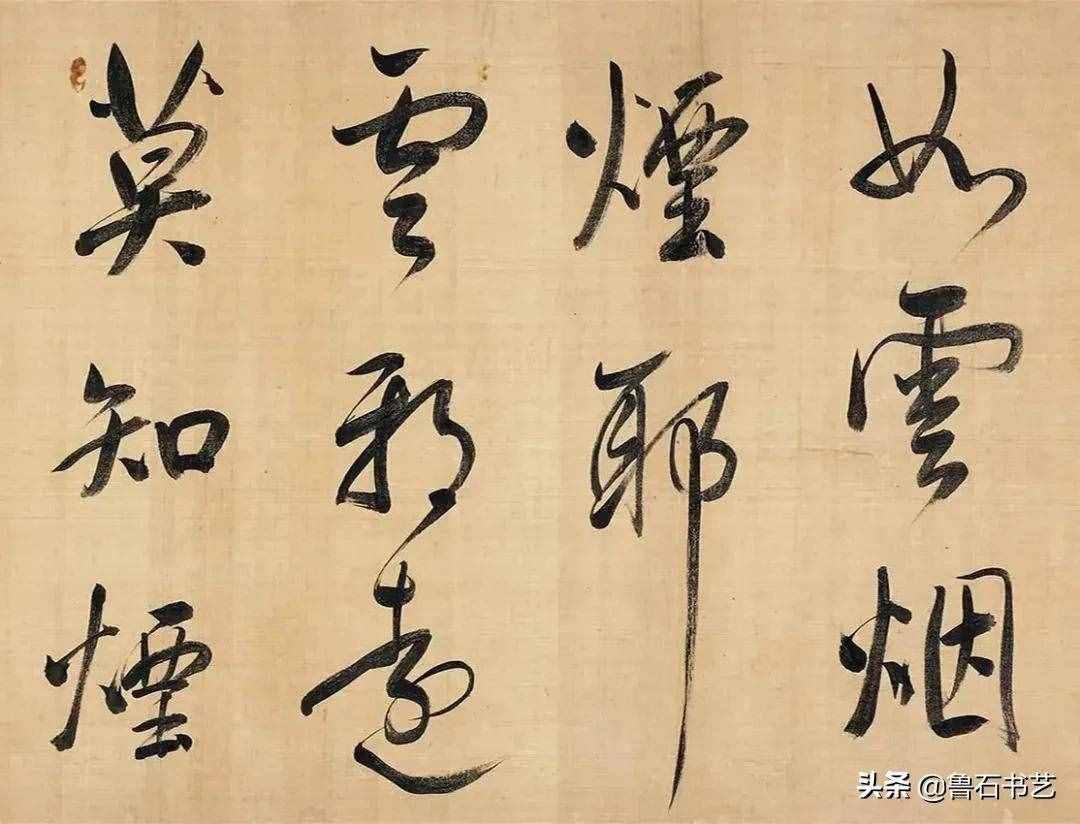 如雲烟
煙耶
雲邪遠
莫知煙
头条 @鲁石书艺